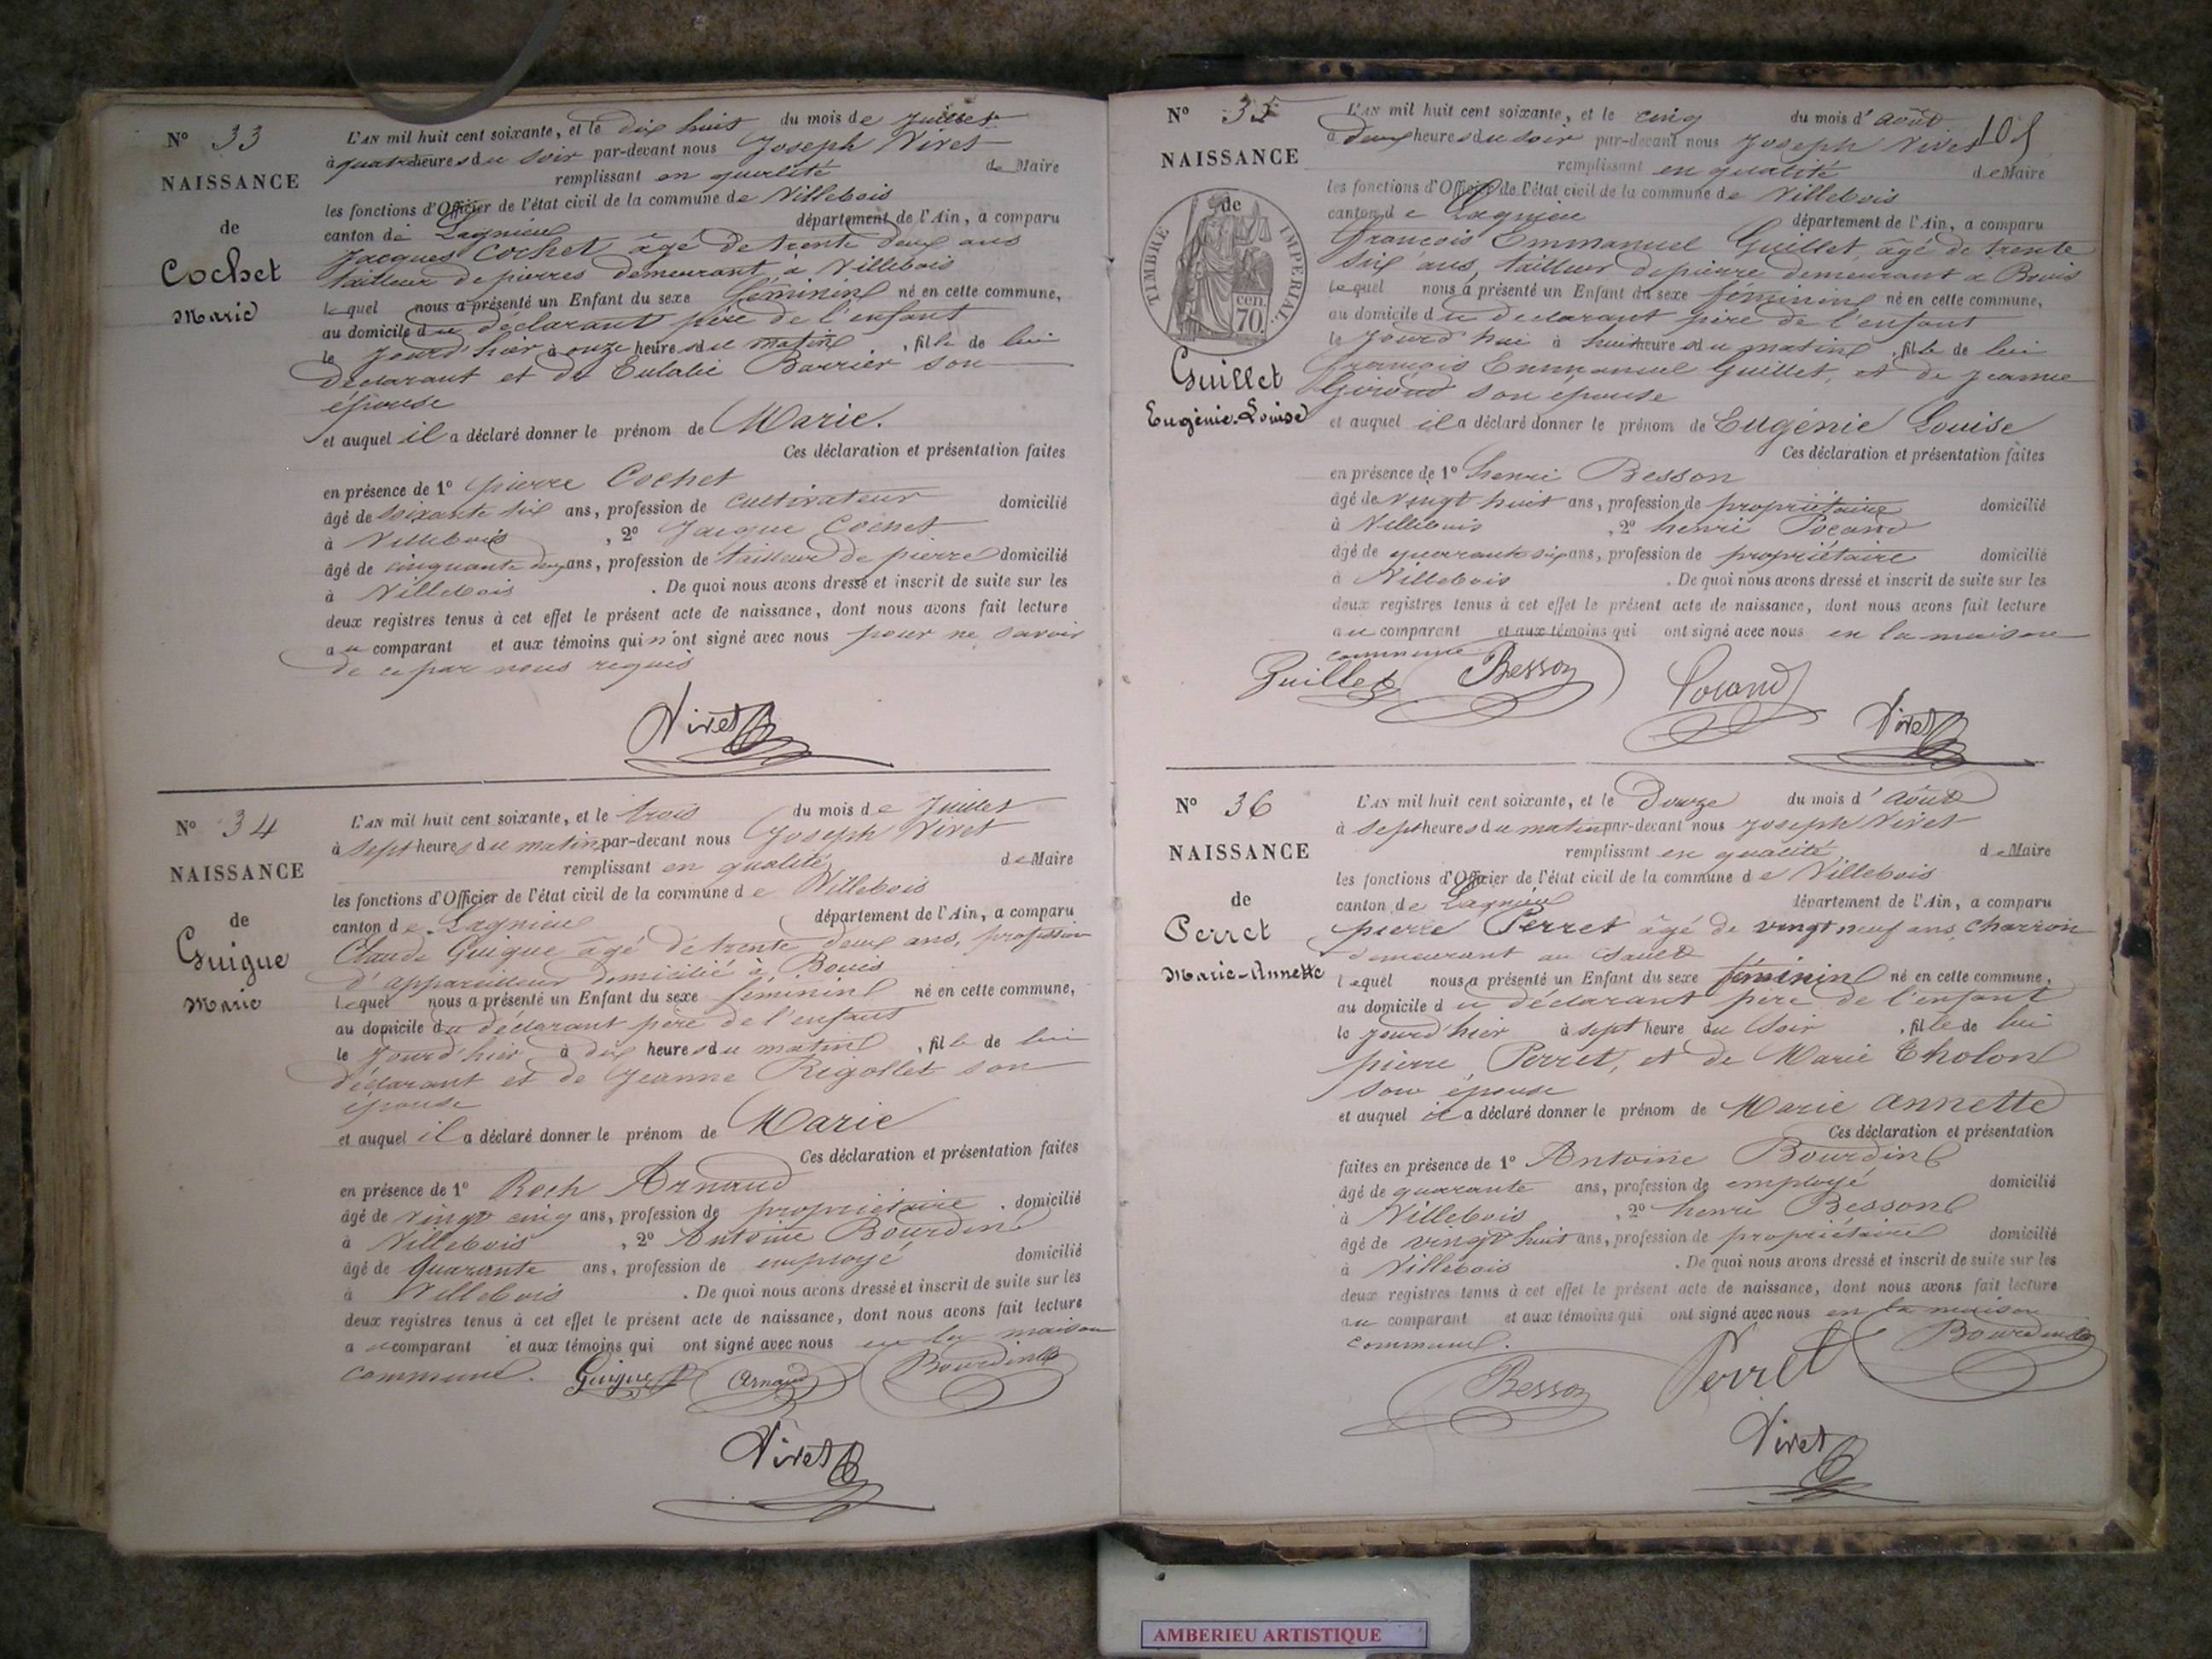 N° 33
NAISSANCE
de
Cochet
Marie
L'AN mil huit cent soixante, et le dix huit du mois de Juillet
à quatre heures du soir par-devant nous Joseph Vivet
remplissant en qualité de Maire
les fonctions d'Officier de l'état civil de la commune de Villebois
canton de Lagnieu département de l'Ain, a comparu
Jacques Cochet âgé de trente deux ans
tailleur de pierres demeurant à Villebois
lequel nous a présenté un Enfant du sexe féminin né en cette commune,
au domicile du déclarant père de l'enfant
le jourd'hier à onze heures du matin, fille de lui
déclarant et de Eulalie Barrier son
épouse
et auquel il a déclaré donner le prénom de Marie.
Ces déclaration et présentation faites
en présence de 1° pierre Cochet
âgé de soixante six ans, profession de cultivateur domicilié
à Villebois, 2° Jacque Cochet
âgé de cinquante deux ans, profession de tailleur de pierre domicilié
à Villebois. De quoi nous avons dressé et inscrit de suite sur les
deux registres tenus à cet effet le présent acte de naissance, dont nous avons fait lecture
au comparant et aux témoins qui n'ont signé avec nous pour ne savoir
de ce par nous requis
Vivet
N° 34
NAISSANCE
de
Guigue
Marie
L'AN mil huit cent soixante, et le trois du mois de Juillet
à sept heures du matin par-devant nous Joseph Vivet
remplissant en qualité de Maire
les fonctions d'Officier de l'état civil de la commune de Villebois
canton de Lagnieu département de l'Ain, a comparu
Claude Guigue âgé de trente deux ans, profession
d'appareilleur domicilié à Bouis
lequel nous a présenté un Enfant du sexe féminin né en cette commune,
au domicile du déclarant père de l'enfant
le jourd'hier à dix heures du matin, fille de lui
déclarant et de Jeanne Rigollet son
épouse
et auquel il a déclaré donner le prénom de Marie
Ces déclaration et présentation faites
en présence de 1° Roch Arnaud
âgé de vingt cinq ans, profession de propriétaire. domicilié
à Villebois, 2° Antoine Bourdin
âgé de Quarante ans, profession de employé domicilié
à Villebois. De quoi nous avons dressé et inscrit de suite sur les
deux registres tenus à cet effet le présent acte de naissance, dont nous avons fait lecture
au comparant et aux témoins qui ont signé avec nous en la maison
commune. Guigue Arnaud Bourdin
Vivet
N° 35
NAISSANCE
de
TIMBRE IMPERIAL.
cen.
70.
Guillet
Eugénie-Louise
105
L'AN mil huit cent soixante, et le cinq du mois d'août
à deux heures du soir par-devant nous Joseph Vivet
remplissant en qualité de Maire
les fonctions d'Officier de l'état civil de la commune de Villebois
canton de Lagnieu département de l'Ain, a comparu
françois Emmanuel Guillet, âgé de trente
six ans, tailleur de pierre demeurant a Bouis
lequel nous a présenté un Enfant du sexe féminin né en cette commune,
au domicile du declarant père de l'enfant
le jourd'hui à huit heures du matin, fille de lui
françois Emmanuel Guillet, et de Jeanne
Giroud son épouse
et auquel il a déclaré donner le prénom de Eugénie Louise
Ces déclaration et présentation faites
en présence de 1° henri Besson
âgé de vingt huit ans, profession de propriétaire domicilié
à Villebois, 2° henri Pocand
âgé de quarante six ans, profession de propriétaire domicilié
à Villebois. De quoi nous avons dressé et inscrit de suite sur les
deux registres tenus à cet effet le présent acte de naissance, dont nous avons fait lecture
au comparant et aux témoins qui ont signé avec nous en la maison
commune
Guillet Besson Pocand
Vivet
N° 36
NAISSANCE
de
Perret
Marie-Annette
L'AN mil huit cent soixante, et le Douze du mois d'août
à sept heures du matin par-devant nous Joseph Vivet
remplissant en qualité de Maire
les fonctions d'Officier de l'état civil de la commune de Villebois
canton de Lagnieu département de l'Ain, a comparu
pierre Perret âgé de vingt neuf ans, charron
demeurant au
lequel nous a présenté un Enfant du sexe féminin né en cette commune,
au domicile du déclarant père de l'enfant
le jourd'hier à sept heure du soir, fille de lui
pierre Perret, et de Marie Tholon
son épouse
et auquel il a déclaré donner le prénom de Marie annette
Ces déclaration et présentation
faites en présence de 1° Antoine Bourdin
âgé de quarante ans, profession de employé domicilié
à Villebois, 2° henri Besson
âgé de vingt huit ans, profession de propriétaire domicilié
à Villebois. De quoi nous avons dressé et inscrit de suite sur les
deux registres tenus à cet effet le présent acte de naissance, dont nous avons fait lecture
au comparant et aux témoins qui ont signé avec nous en la maison
commune.
Besson Perret Bourdin
Vivet
AMBERIEU ARTISTIQUE